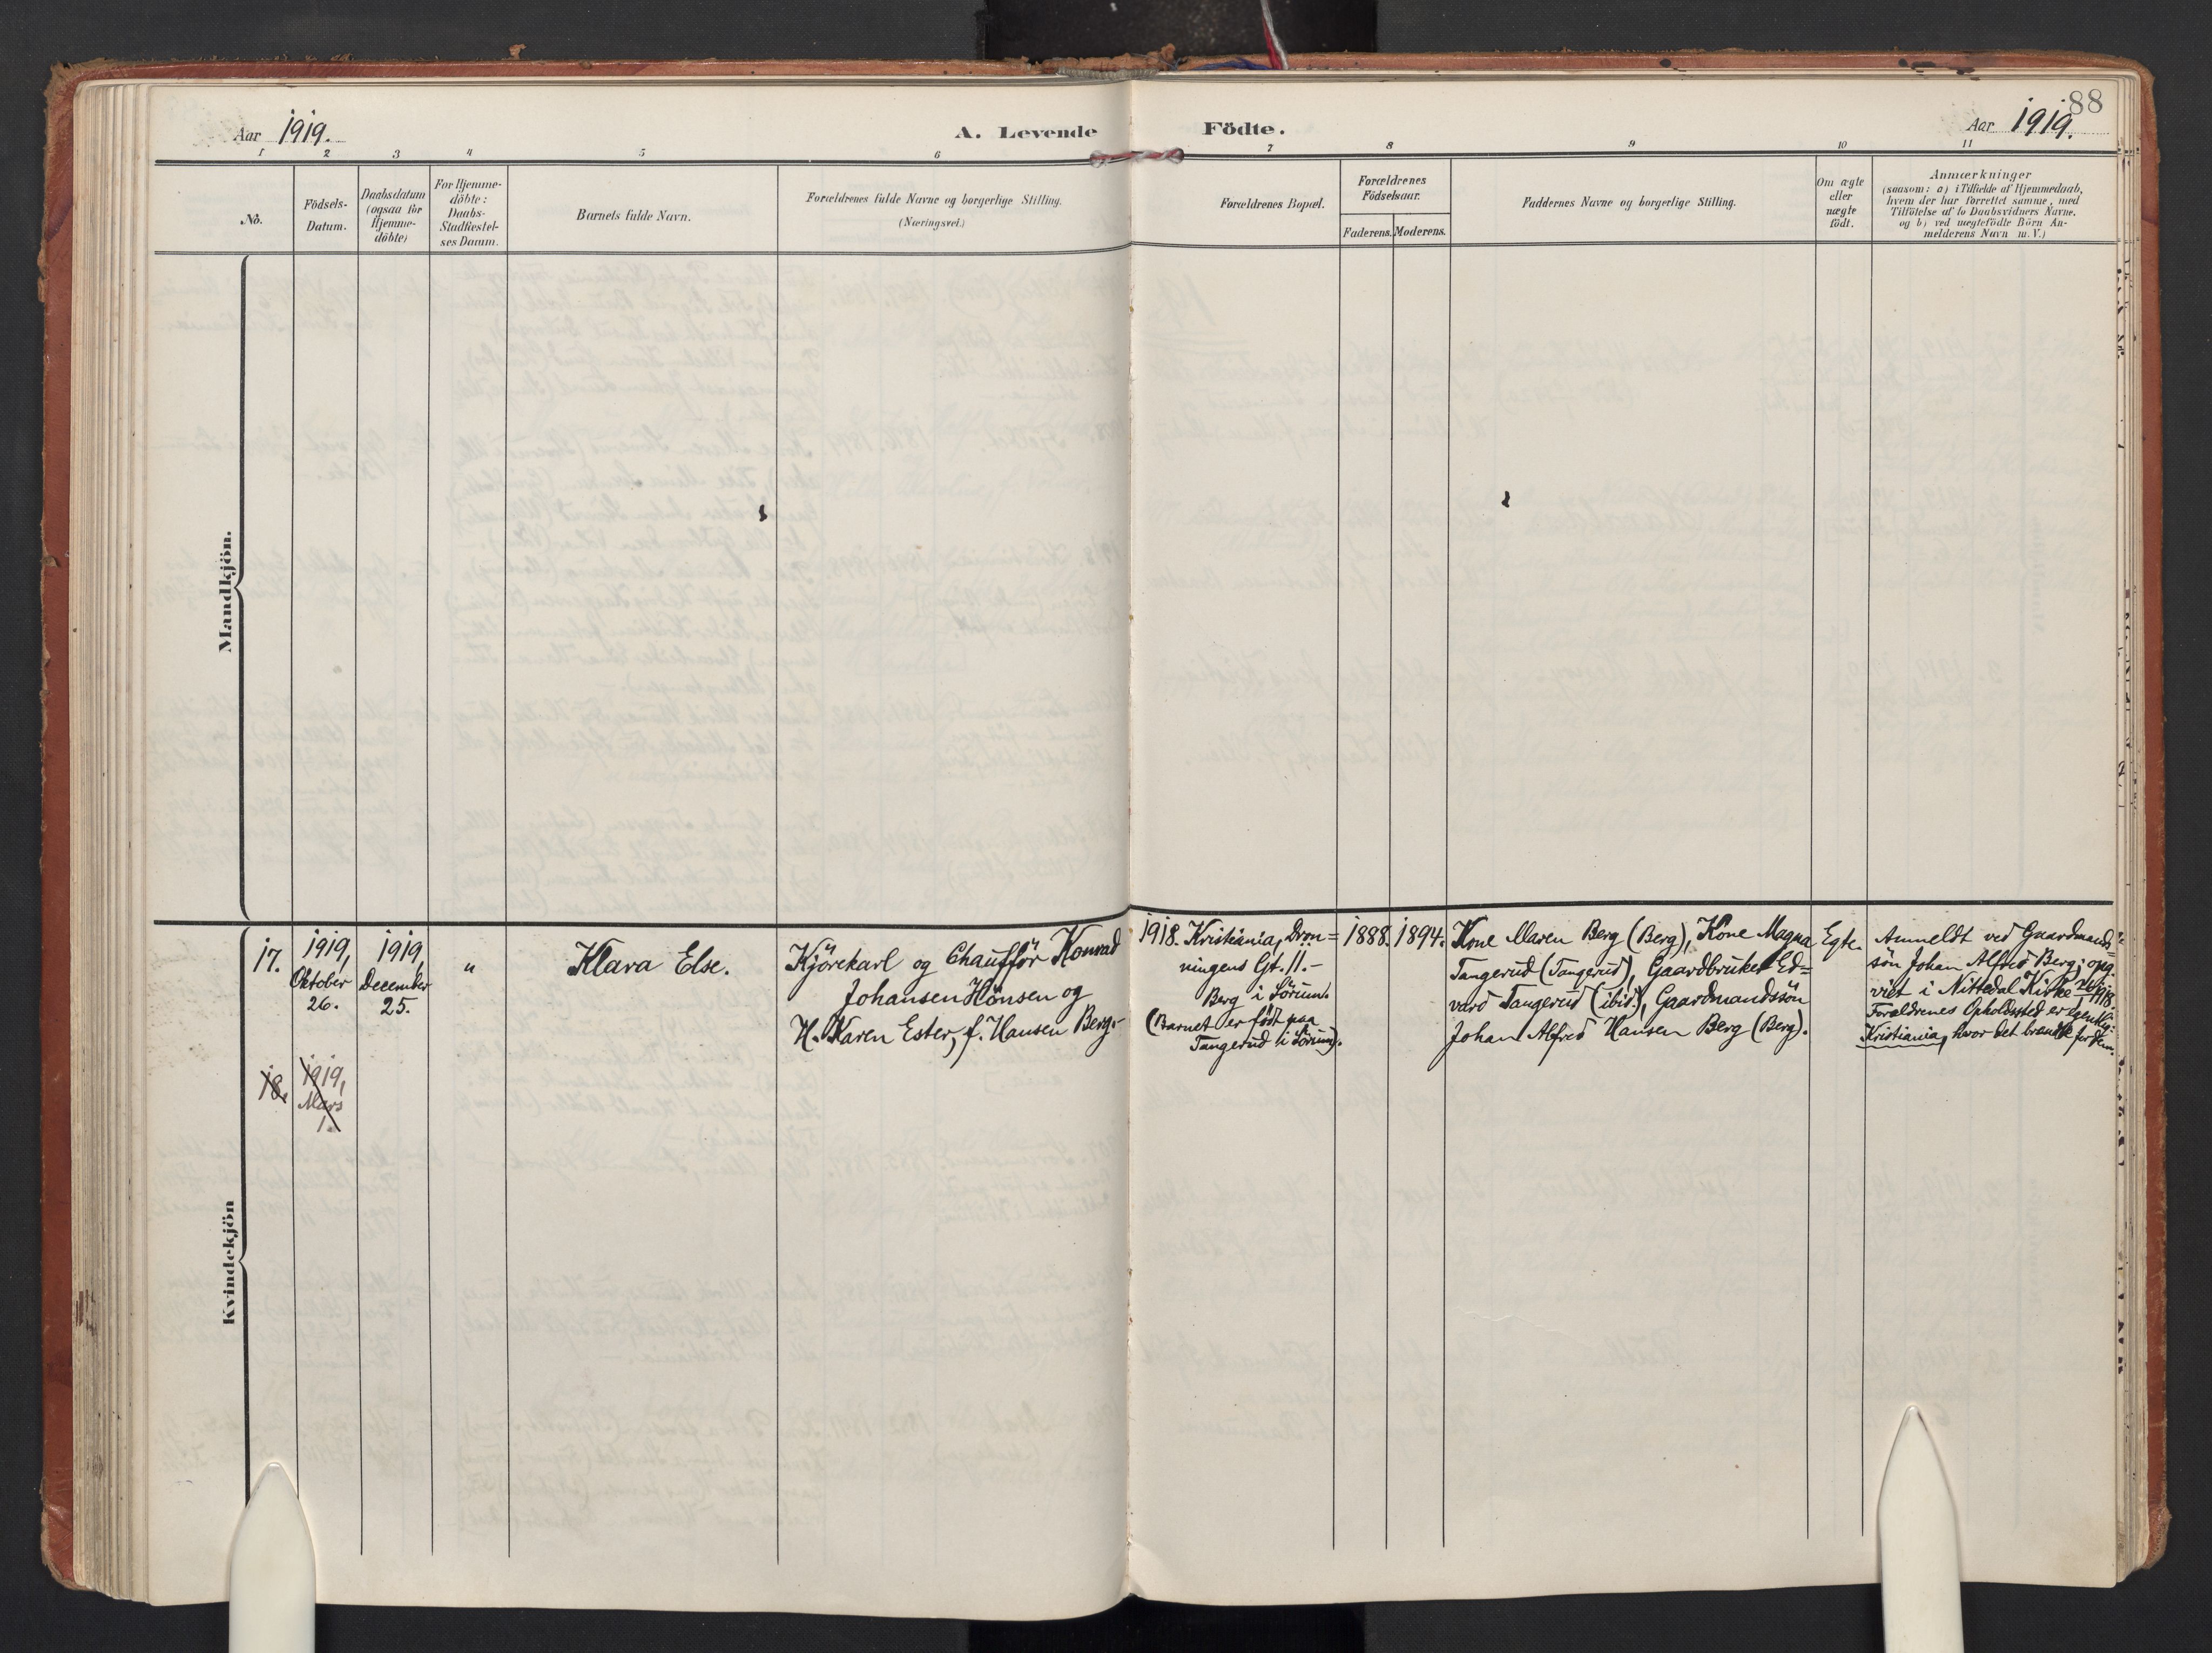 88
Aar 1919.
A. Levende Födte.
Aar 1919.
1 2 3 4 5 6 7 8 9 10 11
No.
Födsels-
Datum.
Daabsdatum
(ogsaa for
Hjemme-
döbte)
For Hjemme-
döbte:
Daabs-
Stadfæstel-
ses Datum.
Barnets fulde Navn.
Forældrenes fulde Navne og borgerlige Stilling.
(Næringsvei.)
Forældrenes Bopæl.
Forældrenes
Födselsaar.
Faderens. Moderens.
Faddernes Navne og borgerlige Stilling.
Om ægte
eller
uægte
födt.
Anmærkninger
(saasom: a) i Tilfælde af Hjemmedaab,
hvem der har forrettet samme, med
Tilföielse af to Daabsvidners Navne,
og b) ved uægtefödte Börn An-
melderens Navn m. V.)
Mandkjön.
Kvindekjön
17.
1919,
Oktober
26.
1919,
December
25.
"
Klara Else.
Kjörekarl og Chaufför Konrad
Johansen Hönsen og
H. Karen Ester, f. Hansen Berg.-
1918. Kristiania, Dron=
ningens Gt. 11.-
Berg i Sörum.
(Barnet er födt paa
Tangerud i Sörum).
1888.
1894.
Kone Maren Berg (Berg), Kone Magna
Tangerud (Tangerud), Gaardbruker Ed=
vard Tangerud (ibid.), Gaardmandssön
Johan Alfred Hansen Berg (Berg).
Egte.
Anmeldt ved Gaardmands=
sön Johan Alfred Berg; opg.
viet i Nittedal Kirke 1918.
Forældrenes Opholdssted er egentlig:
Kristiania, hvor det brændte for dem.
18.
1919,
Mars
1.